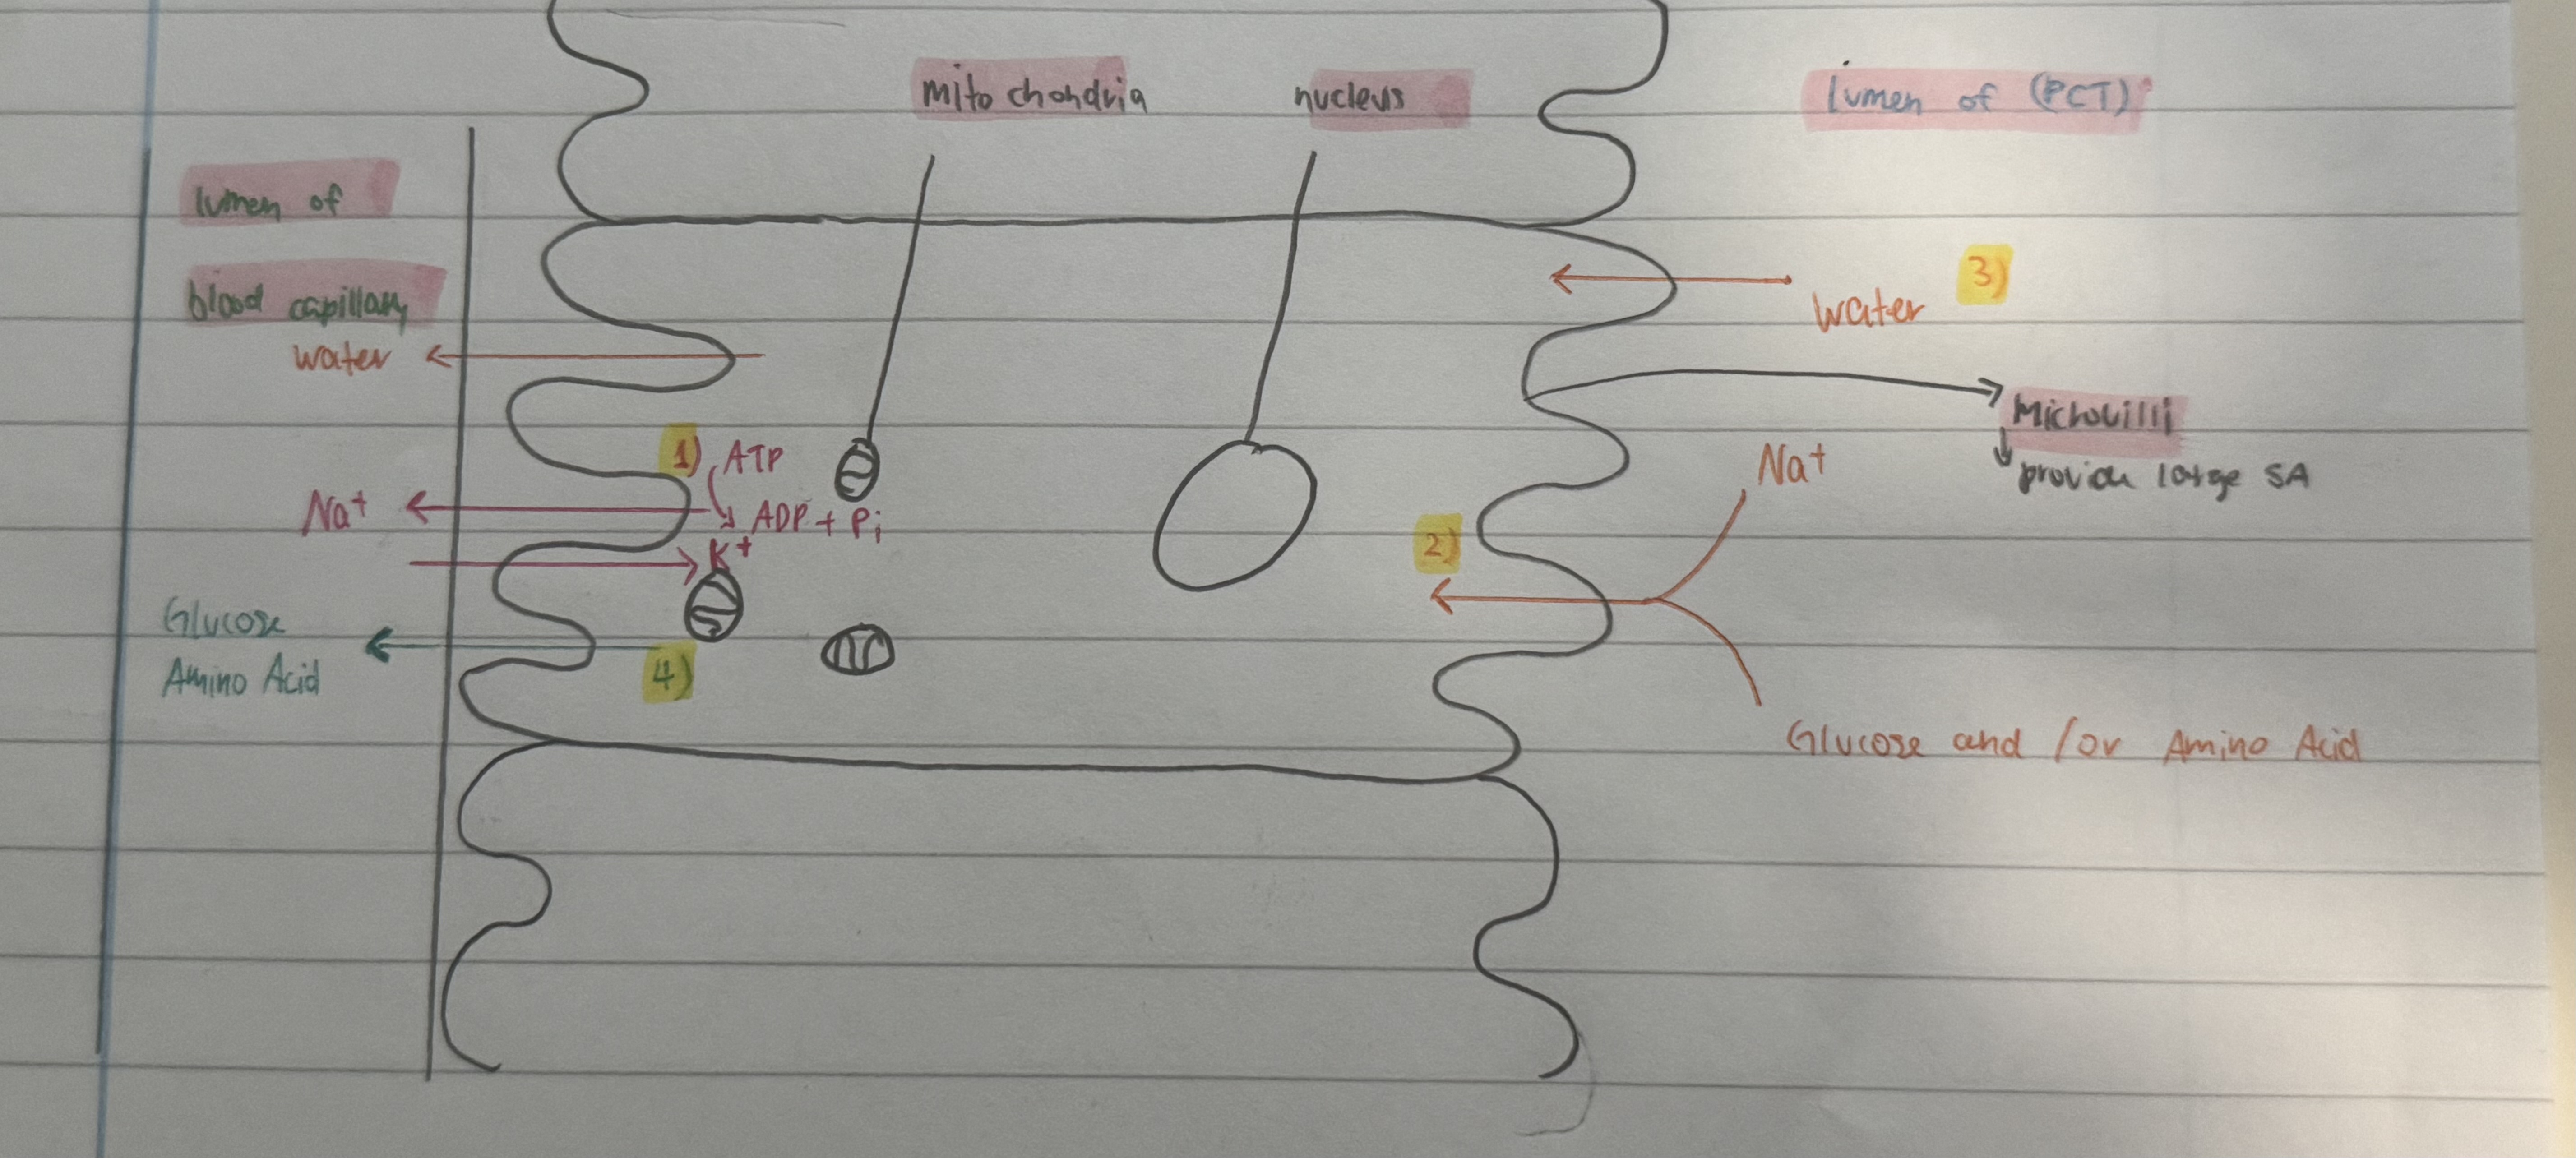 mitochondria
nucleus
lumen of (PCT)
lumen of
blood capillary
3)
water
water
Microvilli
provide large SA
1) ATP
Na+
Na+
ADP + Pi
2)
K+
Glucose
Amino Acid
4)
Glucose and / or Amino Acid